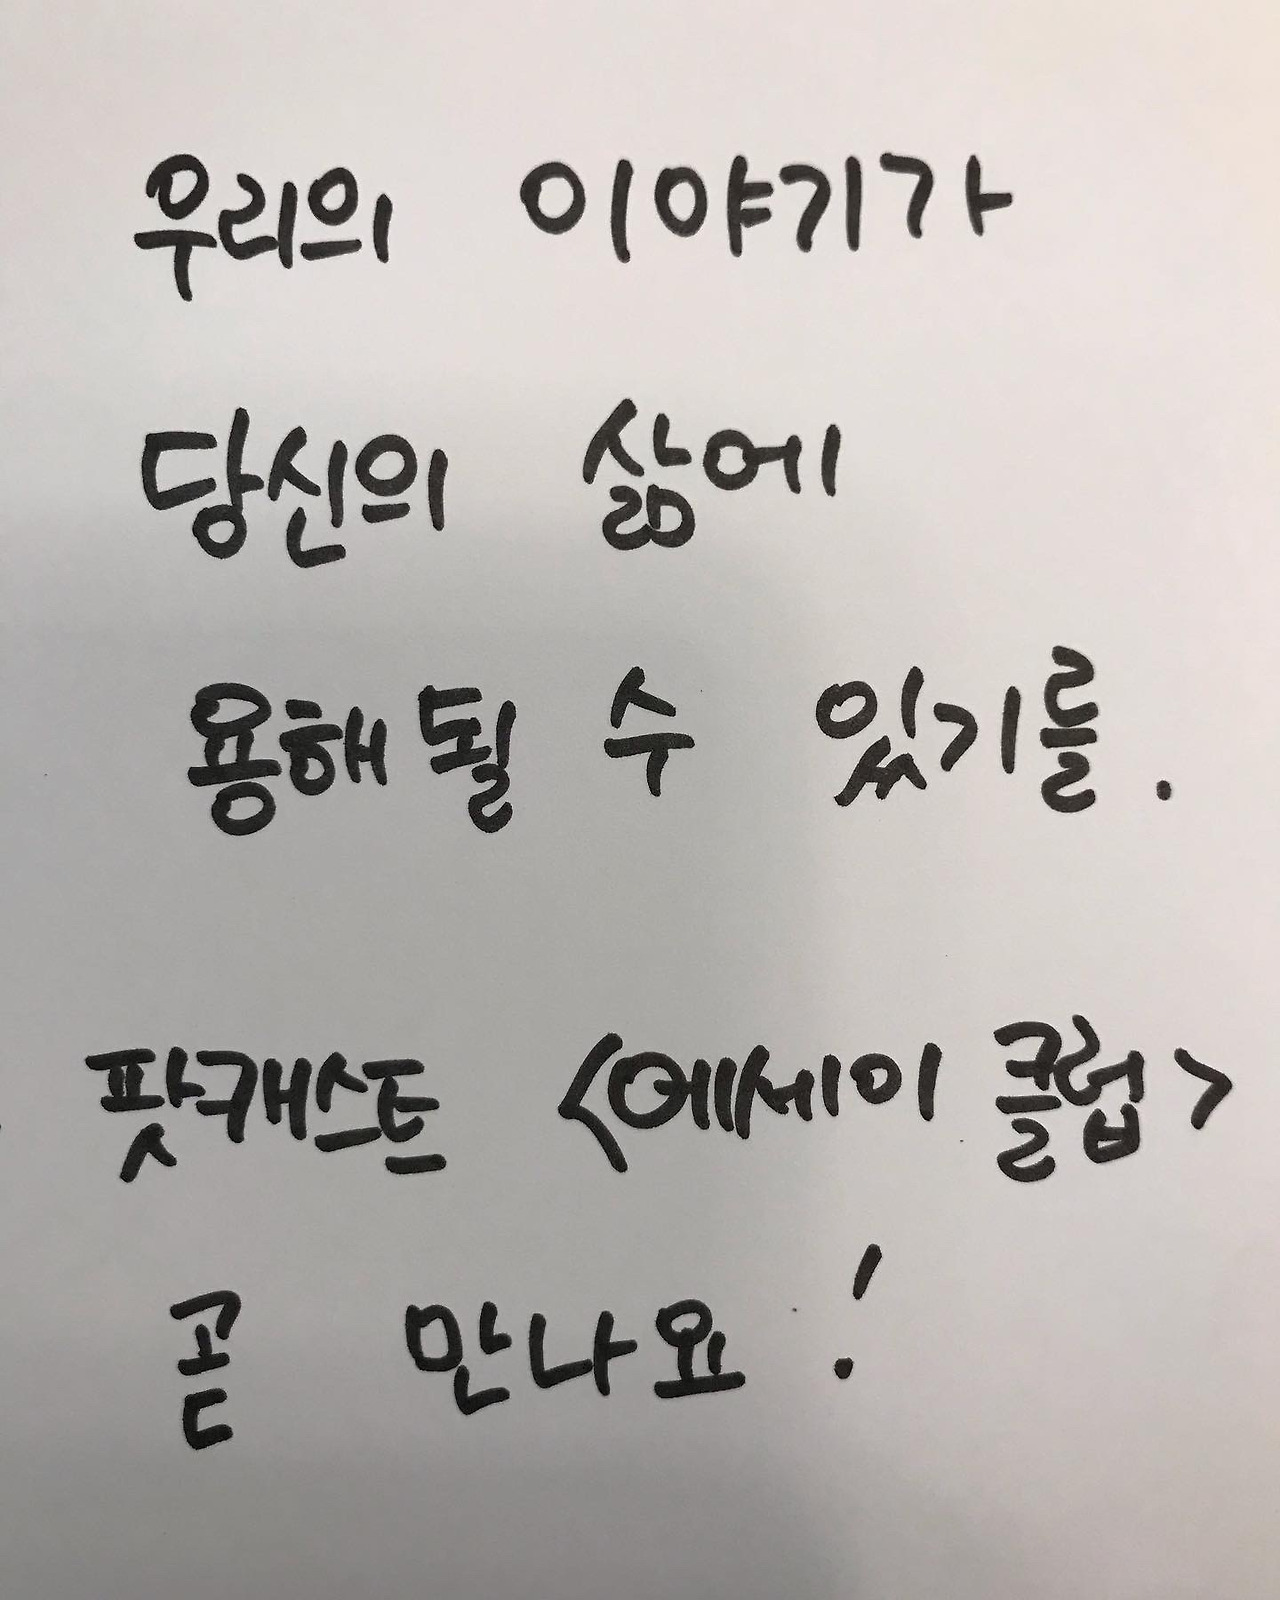 우리의 이야기가
당신의 삶에
용해될 수 있기를.
팟캐스트 <에세이 클럽>
곧 만나요!